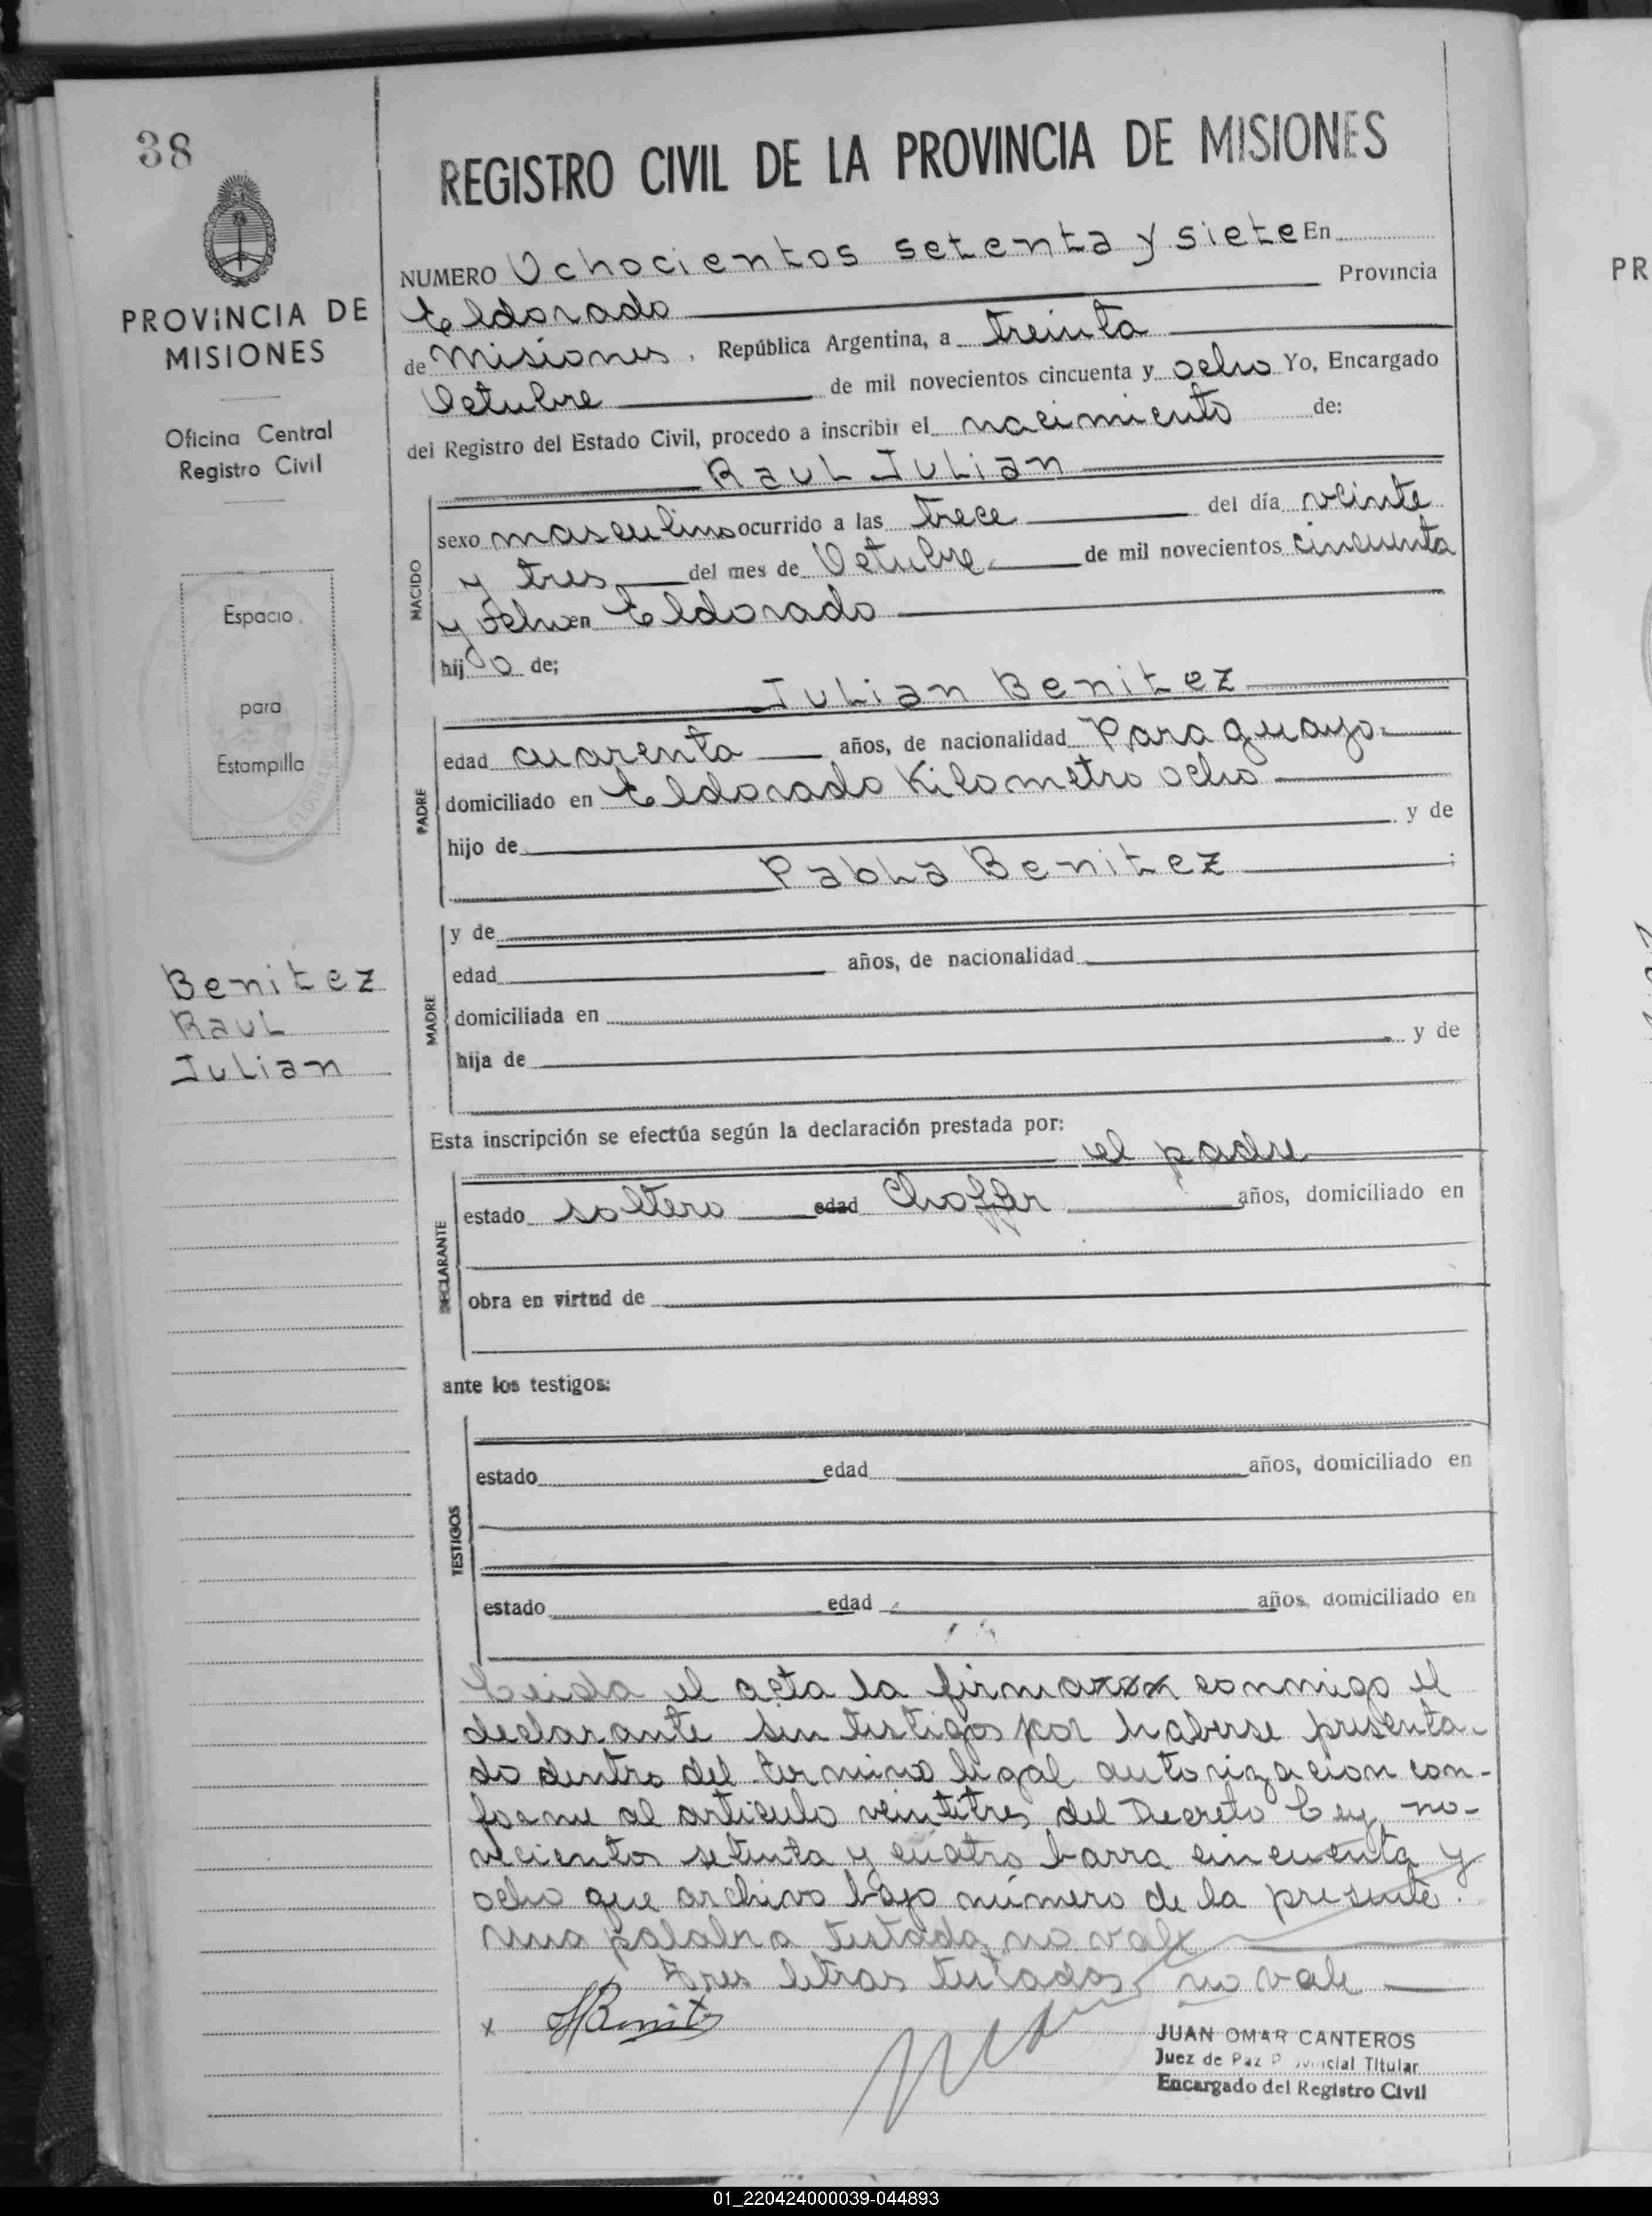 38
REGISTRO CIVIL DE LA PROVINCIA DE MISIONES
PROVINCIA DE
MISIONES
Oficina Central
Registro Civil
Espacio
para
Estampilla
Benitez
Raul
Julian
NUMERO Ochocientos setenta y siete En
Eldorado Provincia
de Misiones, República Argentina, a treinta
Octubre de mil novecientos cincuenta y ocho Yo, Encargado
del Registro del Estado Civil, procedo a inscribir el nacimiento de:
Raul Julian
NACIDO
sexo masculino ocurrido a las trece del día veinte
y tres del mes de Octubre de mil novecientos cincuenta
y ocho en Eldorado
hij o de;
Julian Benitez
PADRE
edad cuarenta años, de nacionalidad Paraguayo
domiciliado en Eldorado Kilometro ocho
hijo de y de
Pabla Benitez ;
MADRE
y de
edad años, de nacionalidad
domiciliada en
hija de y de
Esta inscripción se efectúa según la declaración prestada por:
el padre
DECLARANTE
estado soltero edad Choffer años, domiciliado en
obra en virtud de
ante los testigos:
TESTIGOS
estado edad años, domiciliado en
estado edad años, domiciliado en
Leida el acta la firma conmigo el
declarante sin testigos por haberse presenta-
do dentro del termino legal autorizacion con-
forme al articulo veintitres del Decreto Ley no-
vecientos setenta y cuatro barra cincuenta y
ocho que archivo bajo número de la presente.
Una palabra testada no vale
Tres letras testadas no vale
x Benitez
JUAN OMAR CANTEROS
Juez de Paz Provincial Titular
Encargado del Registro Civil
PR
01_220424000039-044893